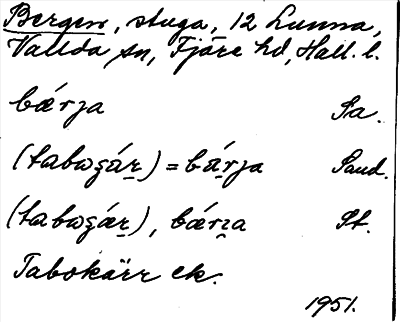 Bergen, stuga, 12 Lunna,
Vallda sn, Fjäre hd, Hall. l.
bǽrja Sa.
(tabωʒár̠) = bár̠ja Sand.
(tabωʒǽr̠), bǽrja St.
Tabokärr ek.
1951.